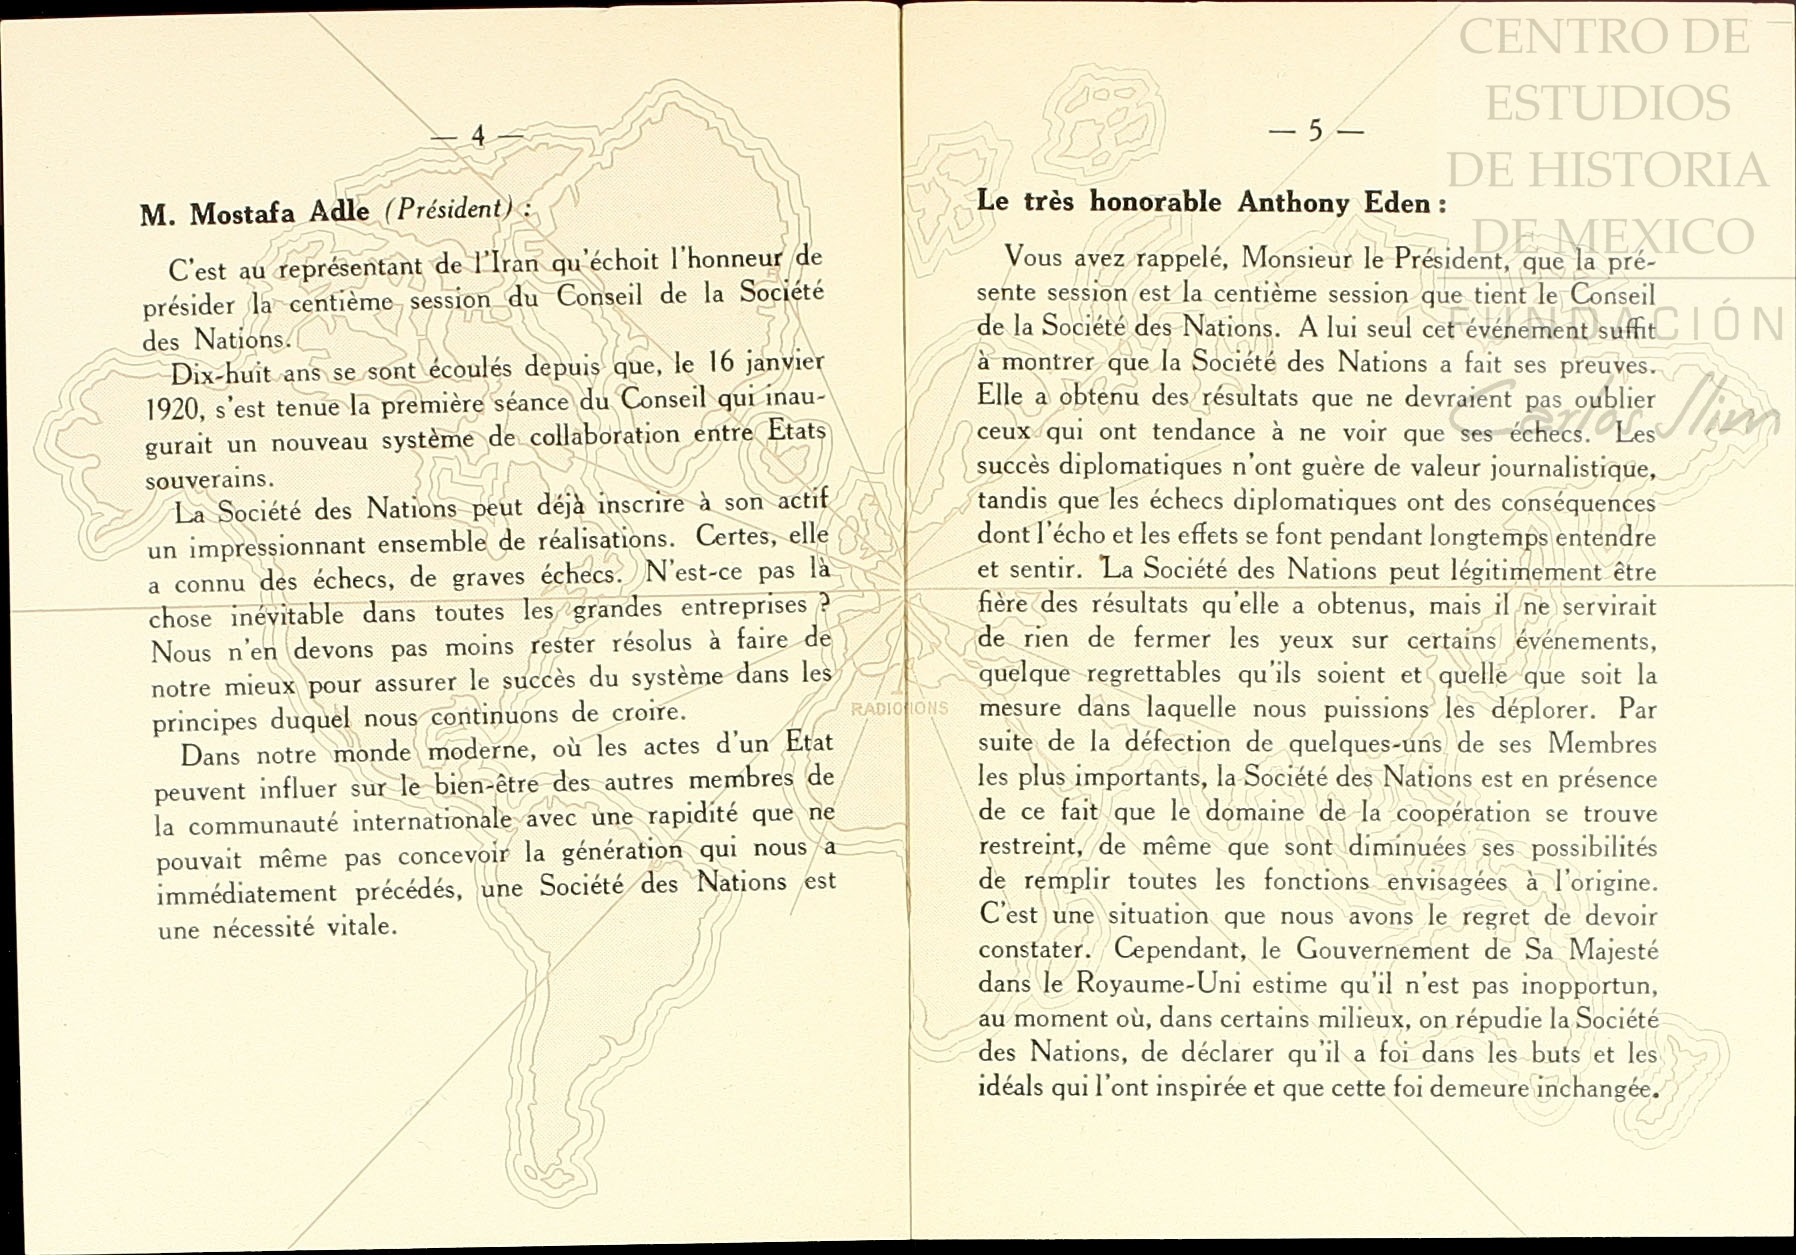 — 4 —
M. Mostafa Adle (Président) :
C'est au représentant de l'Iran qu'échoit l'honneur de
présider la centième session du Conseil de la Société
des Nations.
Dix-huit ans se sont écoulés depuis que, le 16 janvier
1920, s'est tenue la première séance du Conseil qui inau-
gurait un nouveau système de collaboration entre Etats
souverains.
La Société des Nations peut déjà inscrire à son actif
un impressionnant ensemble de réalisations. Certes, elle
a connu des échecs, de graves échecs. N'est-ce pas là
chose inévitable dans toutes les grandes entreprises ?
Nous n'en devons pas moins rester résolus à faire de
notre mieux pour assurer le succès du système dans les
principes duquel nous continuons de croire.
Dans notre monde moderne, où les actes d'un Etat
peuvent influer sur le bien-être des autres membres de
la communauté internationale avec une rapidité que ne
pouvait même pas concevoir la génération qui nous a
immédiatement précédés, une Société des Nations est
une nécessité vitale.
— 5 —
Le très honorable Anthony Eden :
Vous avez rappelé, Monsieur le Président, que la pré-
sente session est la centième session que tient le Conseil
de la Société des Nations. A lui seul cet événement suffit
à montrer que la Société des Nations a fait ses preuves.
Elle a obtenu des résultats que ne devraient pas oublier
ceux qui ont tendance à ne voir que ses échecs. Les
succès diplomatiques n'ont guère de valeur journalistique,
tandis que les échecs diplomatiques ont des conséquences
dont l'écho et les effets se font pendant longtemps entendre
et sentir. La Société des Nations peut légitimement être
fière des résultats qu'elle a obtenus, mais il ne servirait
de rien de fermer les yeux sur certains événements,
quelque regrettables qu'ils soient et quelle que soit la
mesure dans laquelle nous puissions les déplorer. Par
suite de la défection de quelques-uns de ses Membres
les plus importants, la Société des Nations est en présence
de ce fait que le domaine de la coopération se trouve
restreint, de même que sont diminuées ses possibilités
de remplir toutes les fonctions envisagées à l'origine.
C'est une situation que nous avons le regret de devoir
constater. Cependant, le Gouvernement de Sa Majesté
dans le Royaume-Uni estime qu'il n'est pas inopportun,
au moment où, dans certains milieux, on répudie la Société
des Nations, de déclarer qu'il a foi dans les buts et les
idéals qui l'ont inspirée et que cette foi demeure inchangée.
CENTRO DE
ESTUDIOS
DE HISTORIA
DE MEXICO
FUNDACIÓN
Carlos Slim